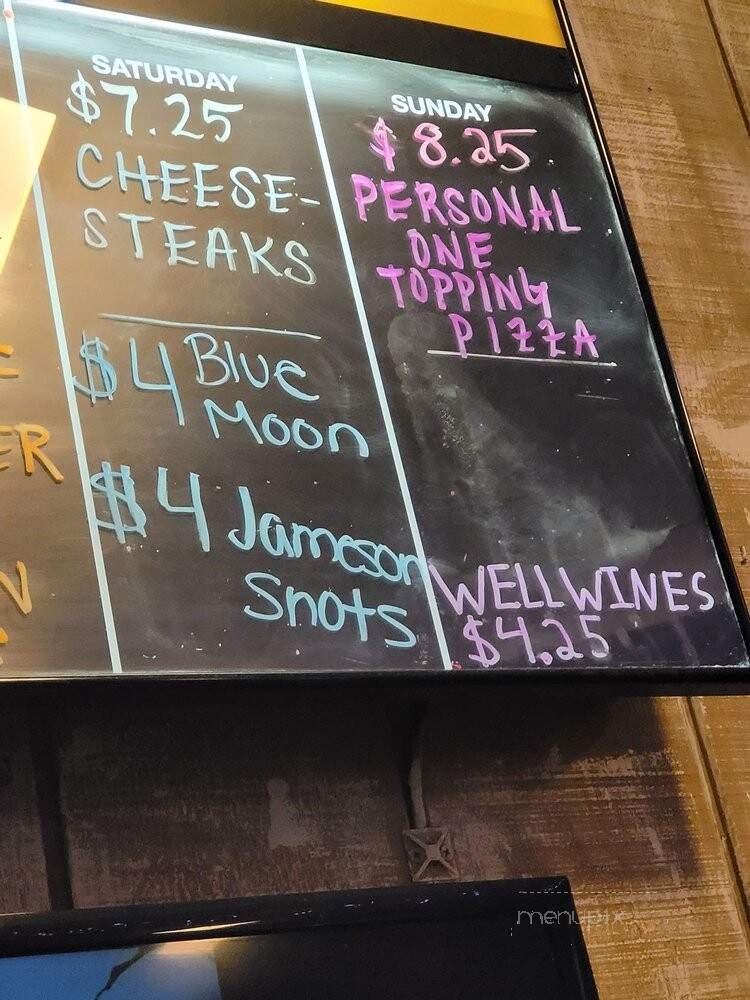 SATURDAY
$7.25
CHEESE-
STEAKS
$4 Blue
Moon
$4 Jameson
Snots
SUNDAY
$8.25
PERSONAL
ONE
TOPPING
PIZZA
WELL WINES
$4.25
ER
menupix